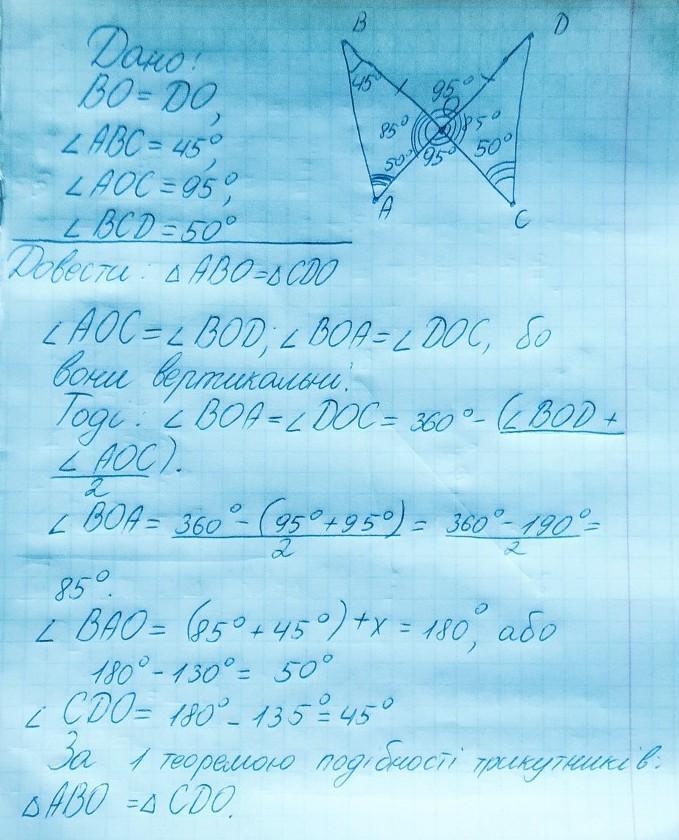 Дано:
BO = DO,
∠ABC = 45°,
∠AOC = 95°,
∠BCD = 50°
B
D
45°
95°
O
85°
85°
50°
95°
50°
A
C
Довести: △ABO = △CDO
∠AOC = ∠BOD; ∠BOA = ∠DOC, бо
вони вертикальні.
Тоді: ∠BOA = ∠DOC = 360° - (∠BOD +
∠AOC).
2
∠BOA = 360° - (95° + 95°) = 360° - 190° =
2 2
85°.
∠BAO = (85° + 45°) + x = 180°, або
180° - 130° = 50°
∠CDO = 180° - 135° = 45°
За 1 теоремою подібності трикутників:
△ABO = △CDO.